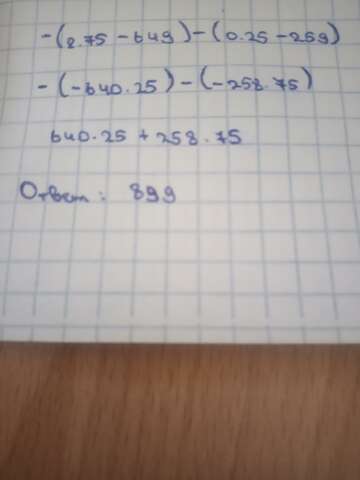 -(8.75 - 649) - (0.25 - 259)
-(-640.25) - (-258.75)
640.25 + 258.75
Ответ: 899